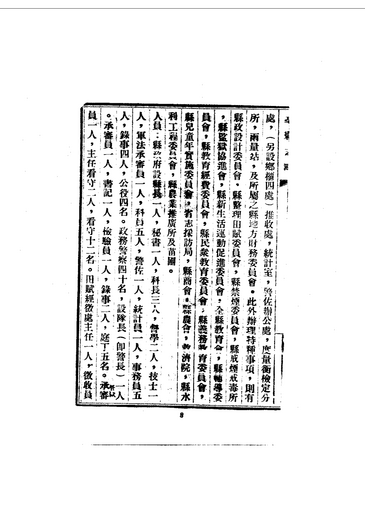 處，（另設鄉櫃四處）推收處，統計室，警佐辦公處，度量衡檢定分
所，雨量站，及所屬之縣地方財務委員會。此外辦理特種事項，則有
縣政設計委員會，縣整理田賦委員會，縣禁煙委員會，縣戒煙戒毒所
，縣監獄協進會，縣新生活運動促進委員會，全縣教育會，縣輔導委
員會，縣教育經費委員會，縣民衆教育委員會，縣義務教育委員會，
縣兒童年實施委員會，省志採訪局，縣商會，縣農會，救濟院，縣水
利工程委員會，縣農業推廣所及苗圃。
人員：縣政府設縣長一人，秘書一人，科長三人，督學二人，技士一
人，軍法承審員一人，科員五人，警佐一人，統計員一人，事務員五
人，錄事四人，公役四名。政務警察四十名，設隊長（即警長）一人
。承審員一人，書記一人，檢驗員一人，錄事二人，庭丁五名。承審
員一人，主任看守二人，看守十二名。田賦經徵處主任一人，徵收員
8